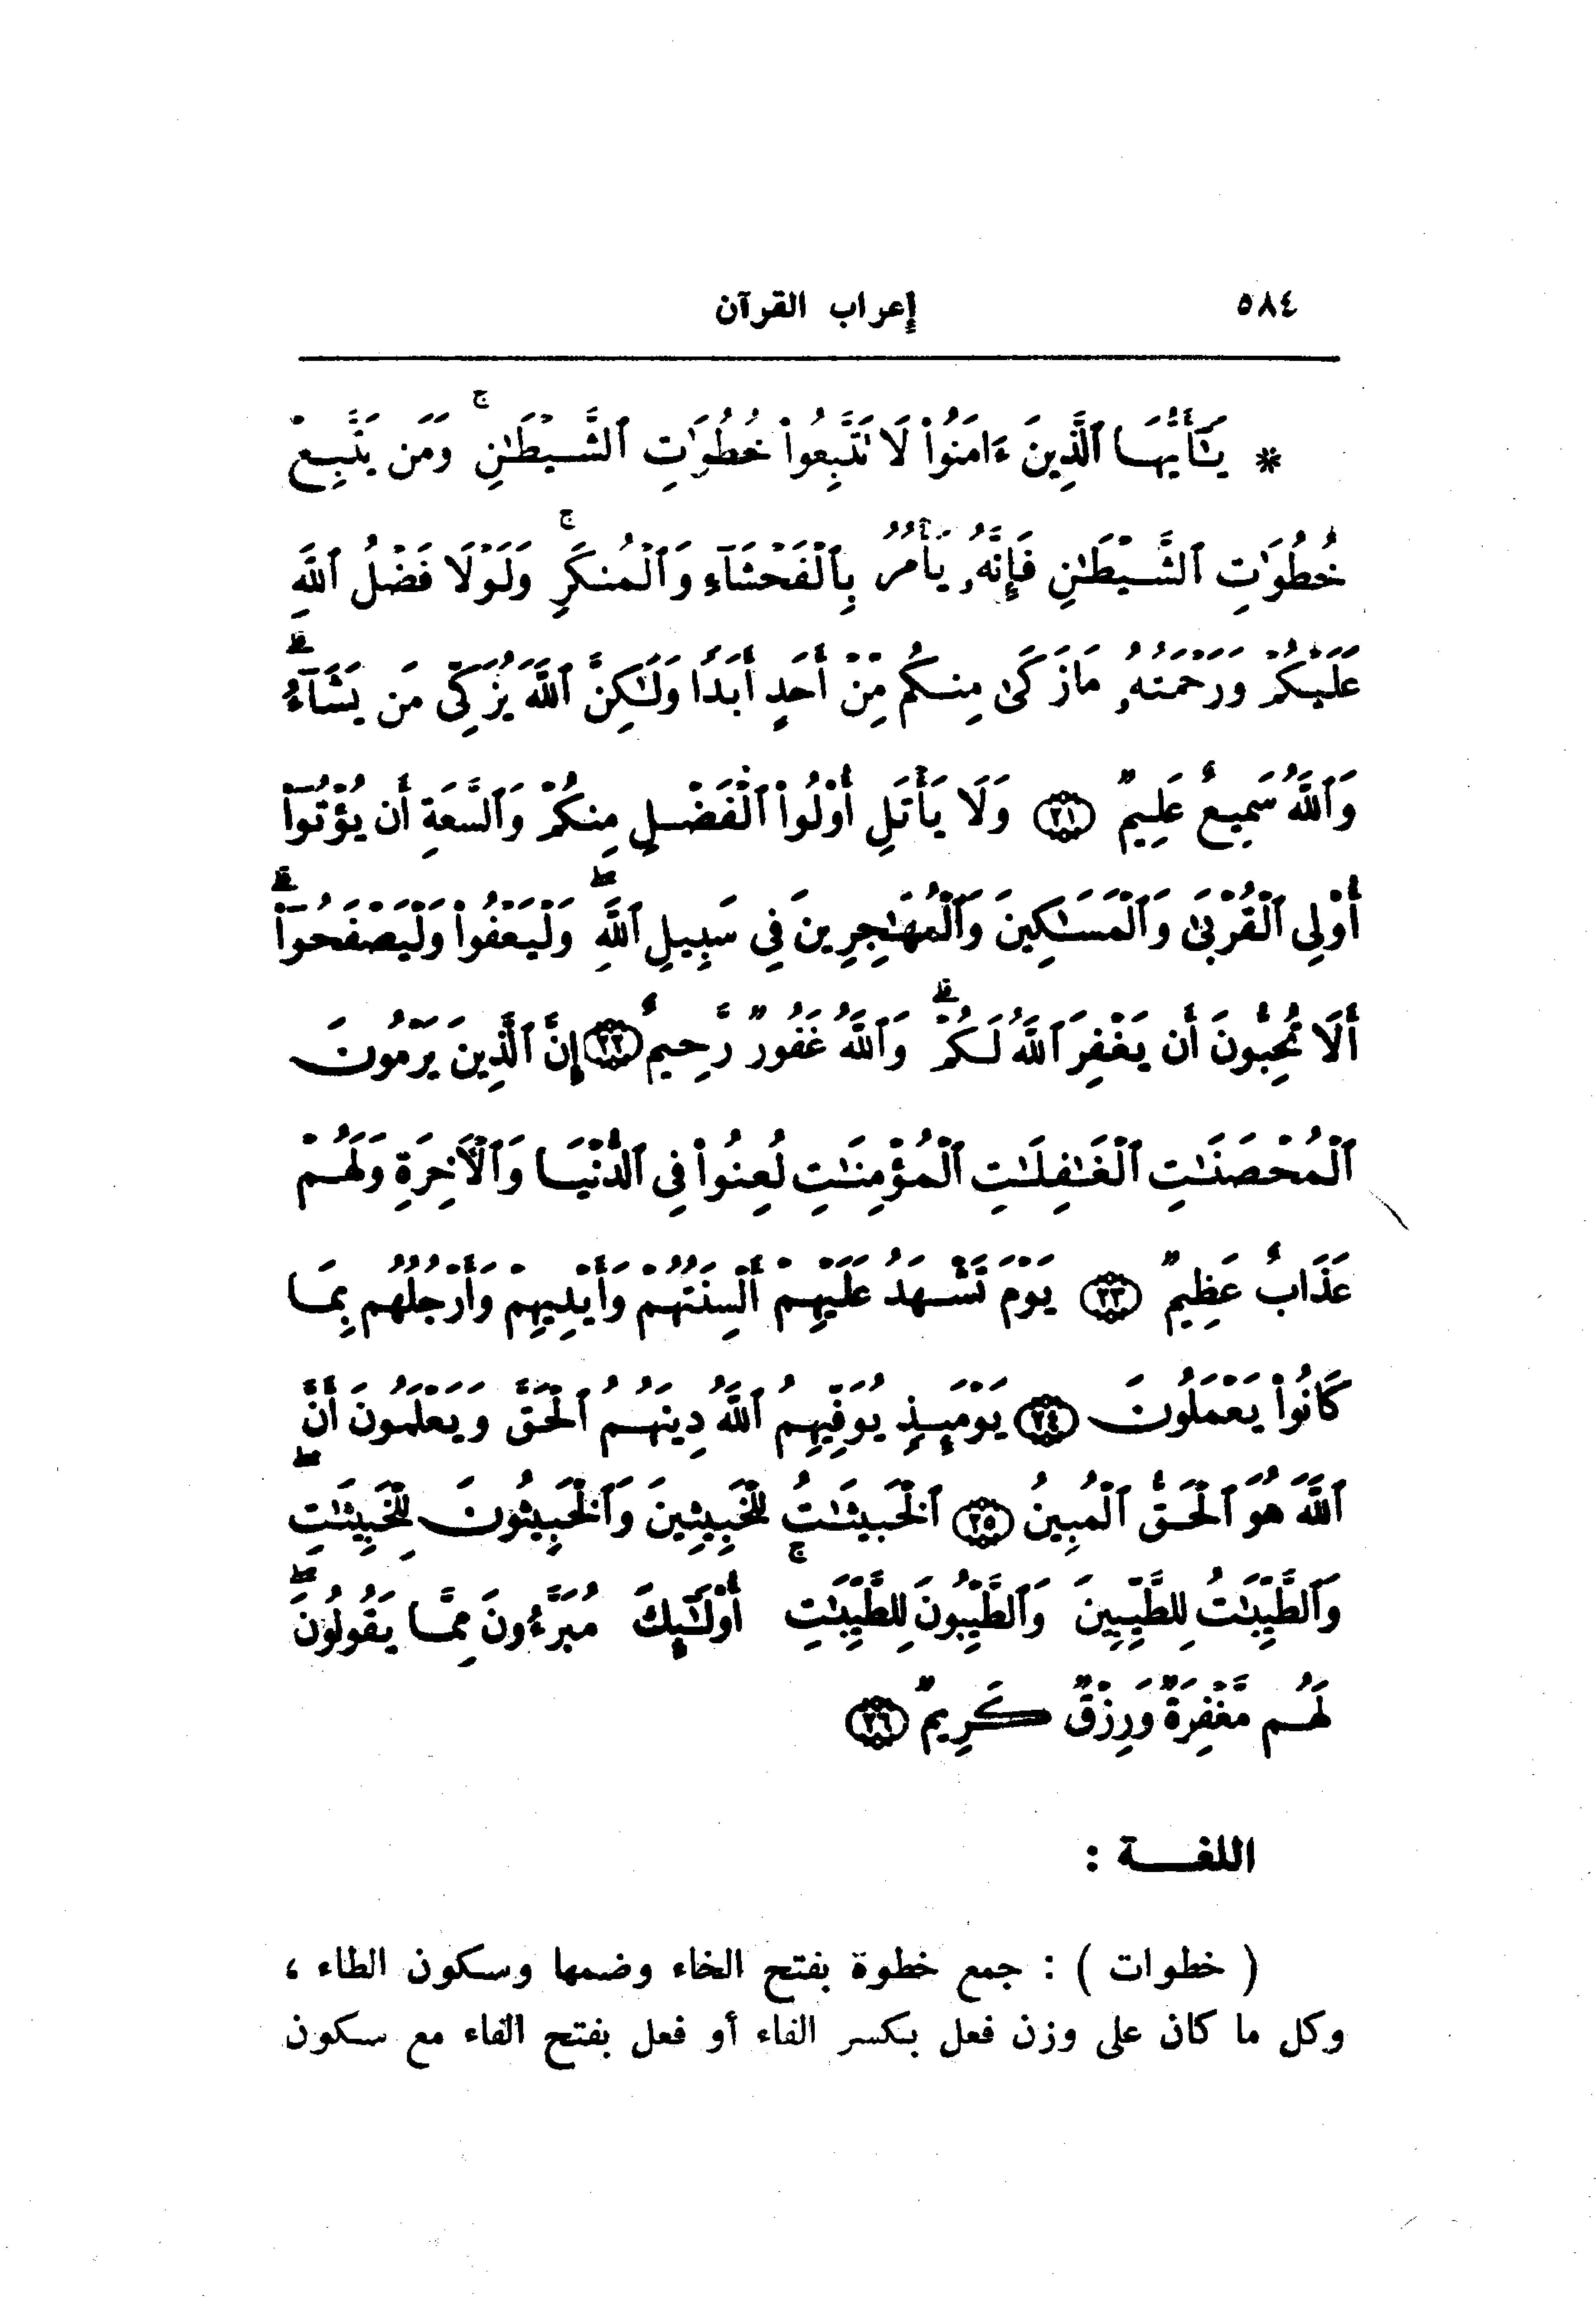 ٥٨٤
إعراب القرآن
* يَـٰٓأَيُّهَا ٱلَّذِينَ ءَامَنُوا۟ لَا تَتَّبِعُوا۟ خُطُوَٰتِ ٱلشَّيْطَـٰنِ ۚ وَمَن يَتَّبِعْ
خُطُوَٰتِ ٱلشَّيْطَـٰنِ فَإِنَّهُۥ يَأْمُرُ بِٱلْفَحْشَآءِ وَٱلْمُنكَرِ ۚ وَلَوْلَا فَضْلُ ٱللَّهِ
عَلَيْكُمْ وَرَحْمَتُهُۥ مَا زَكَىٰ مِنكُم مِّنْ أَحَدٍ أَبَدًا وَلَـٰكِنَّ ٱللَّهَ يُزَكِّى مَن يَشَآءُ ۗ
وَٱللَّهُ سَمِيعٌ عَلِيمٌ ﴿٢١﴾ وَلَا يَأْتَلِ أُو۟لُوا۟ ٱلْفَضْلِ مِنكُمْ وَٱلسَّعَةِ أَن يُؤْتُوٓا۟
أُو۟لِى ٱلْقُرْبَىٰ وَٱلْمَسَـٰكِينَ وَٱلْمُهَـٰجِرِينَ فِى سَبِيلِ ٱللَّهِ ۖ وَلْيَعْفُوا۟ وَلْيَصْفَحُوٓا۟ ۗ
أَلَا تُحِبُّونَ أَن يَغْفِرَ ٱللَّهُ لَكُمْ ۗ وَٱللَّهُ غَفُورٌ رَّحِيمٌ ﴿٢٢﴾ إِنَّ ٱلَّذِينَ يَرْمُونَ
ٱلْمُحْصَنَـٰتِ ٱلْغَـٰفِلَـٰتِ ٱلْمُؤْمِنَـٰتِ لُعِنُوا۟ فِى ٱلدُّنْيَا وَٱلْـَٔاخِرَةِ وَلَهُمْ
عَذَابٌ عَظِيمٌ ﴿٢٣﴾ يَوْمَ تَشْهَدُ عَلَيْهِمْ أَلْسِنَتُهُمْ وَأَيْدِيهِمْ وَأَرْجُلُهُم بِمَا
كَانُوا۟ يَعْمَلُونَ ﴿٢٤﴾ يَوْمَئِذٍ يُوَفِّيهِمُ ٱللَّهُ دِينَهُمُ ٱلْحَقَّ وَيَعْلَمُونَ أَنَّ
ٱللَّهَ هُوَ ٱلْحَقُّ ٱلْمُبِينُ ﴿٢٥﴾ ٱلْخَبِيثَـٰتُ لِلْخَبِيثِينَ وَٱلْخَبِيثُونَ لِلْخَبِيثَـٰتِ ۖ
وَٱلطَّيِّبَـٰتُ لِلطَّيِّبِينَ وَٱلطَّيِّبُونَ لِلطَّيِّبَـٰتِ ۚ أُو۟لَـٰٓئِكَ مُبَرَّءُونَ مِمَّا يَقُولُونَ ۖ
لَهُم مَّغْفِرَةٌ وَرِزْقٌ كَرِيمٌ ﴿٢٦﴾
اللغـــة :
( خطوات ) : جمع خطوة بفتح الخاء وضمها وسكون الطاء ،
وكل ما كان على وزن فعل بكسر الفاء أو فعل بفتح الفاء مع سكون